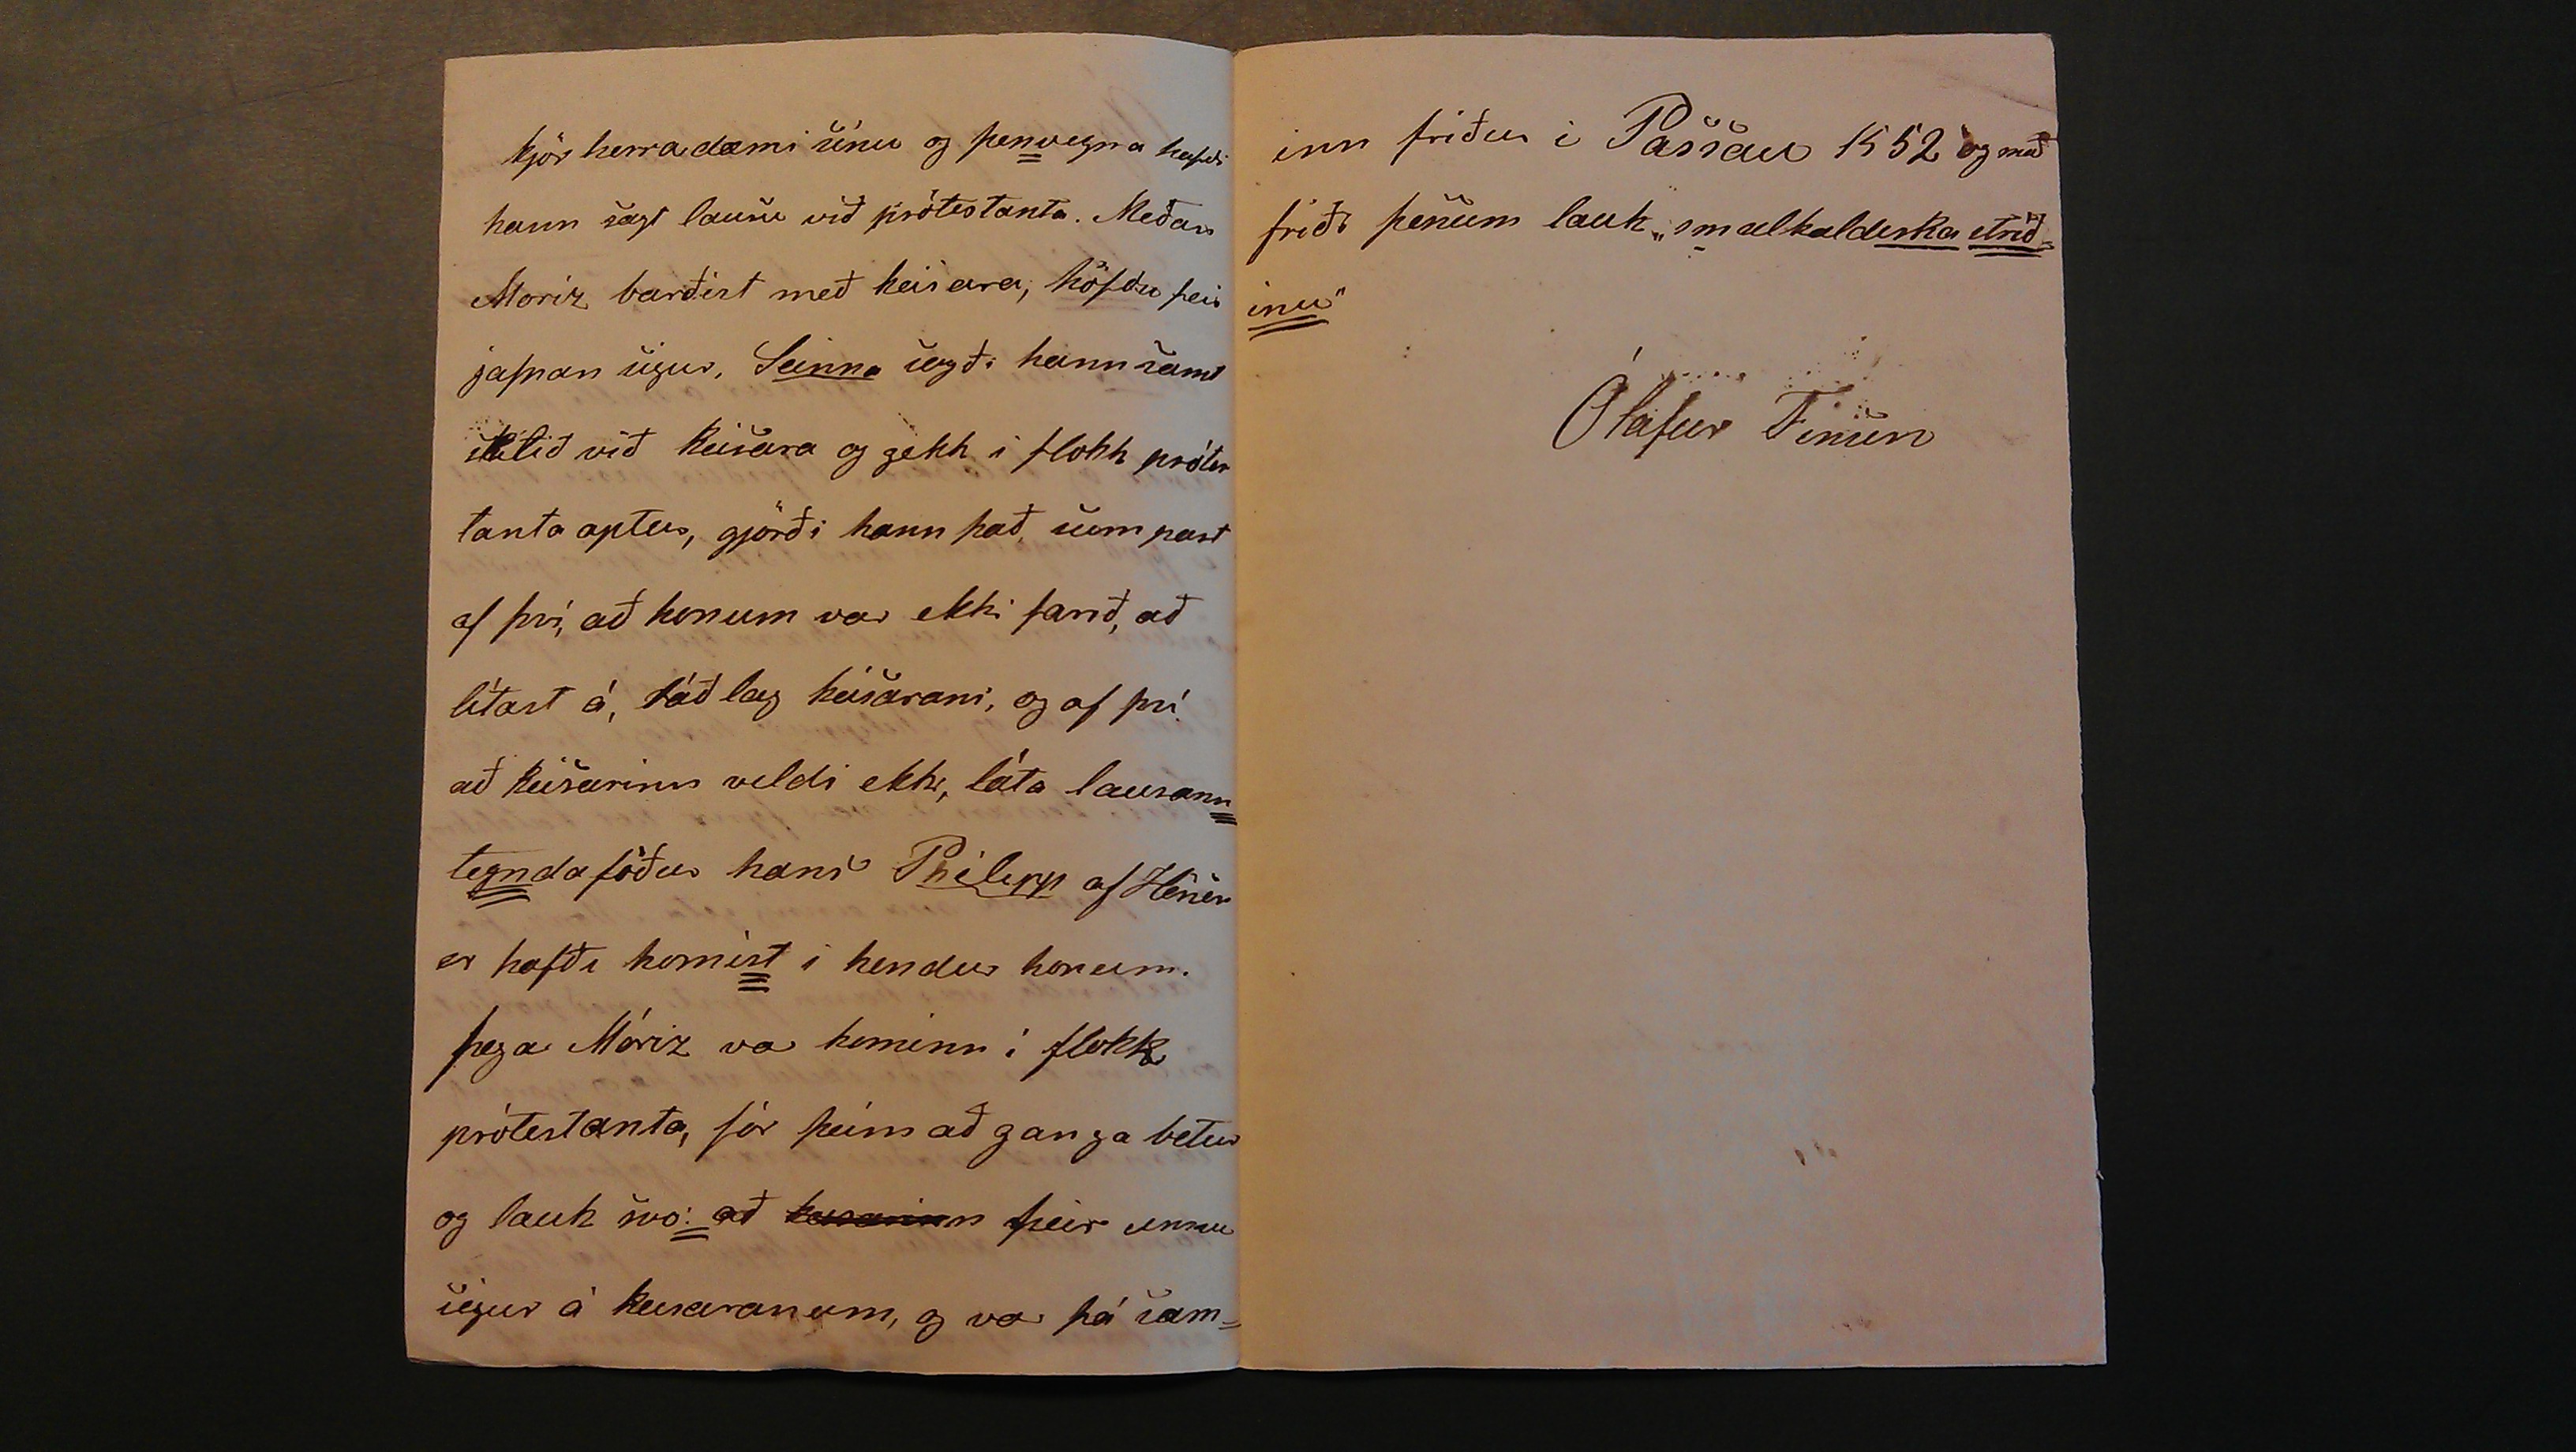 kjörherradæmi sínu og þenvegna hafði
hann sagt lausu við prótestanta. Meðan
Moriz barðist með keisara, höfðu þeir
jafnan sigur. Seinna sagði hann samt
skilið við keisara og gekk i flokk prótes
tanta aptur, gjörði hann það, sum part
af því, að honum var ekki farið, að
lítast á, ráðlag keisarans, og af því
að keisarinn veldi ekki, láta lausann
tegndaföður hans Philipp af Hessen
er hafði komist i hendur honum.
þega Móriz va kominn i flokk
prótestanta, fór þeim að ganga betur
og lauk svo: að keisarinn þeir unnu
sigur á keisaranum, og va þá sam=
inn friður i Passau 1552 og með
friði þessum lauk „smalkaldeska strið=
inu"
Ólafur Finsen